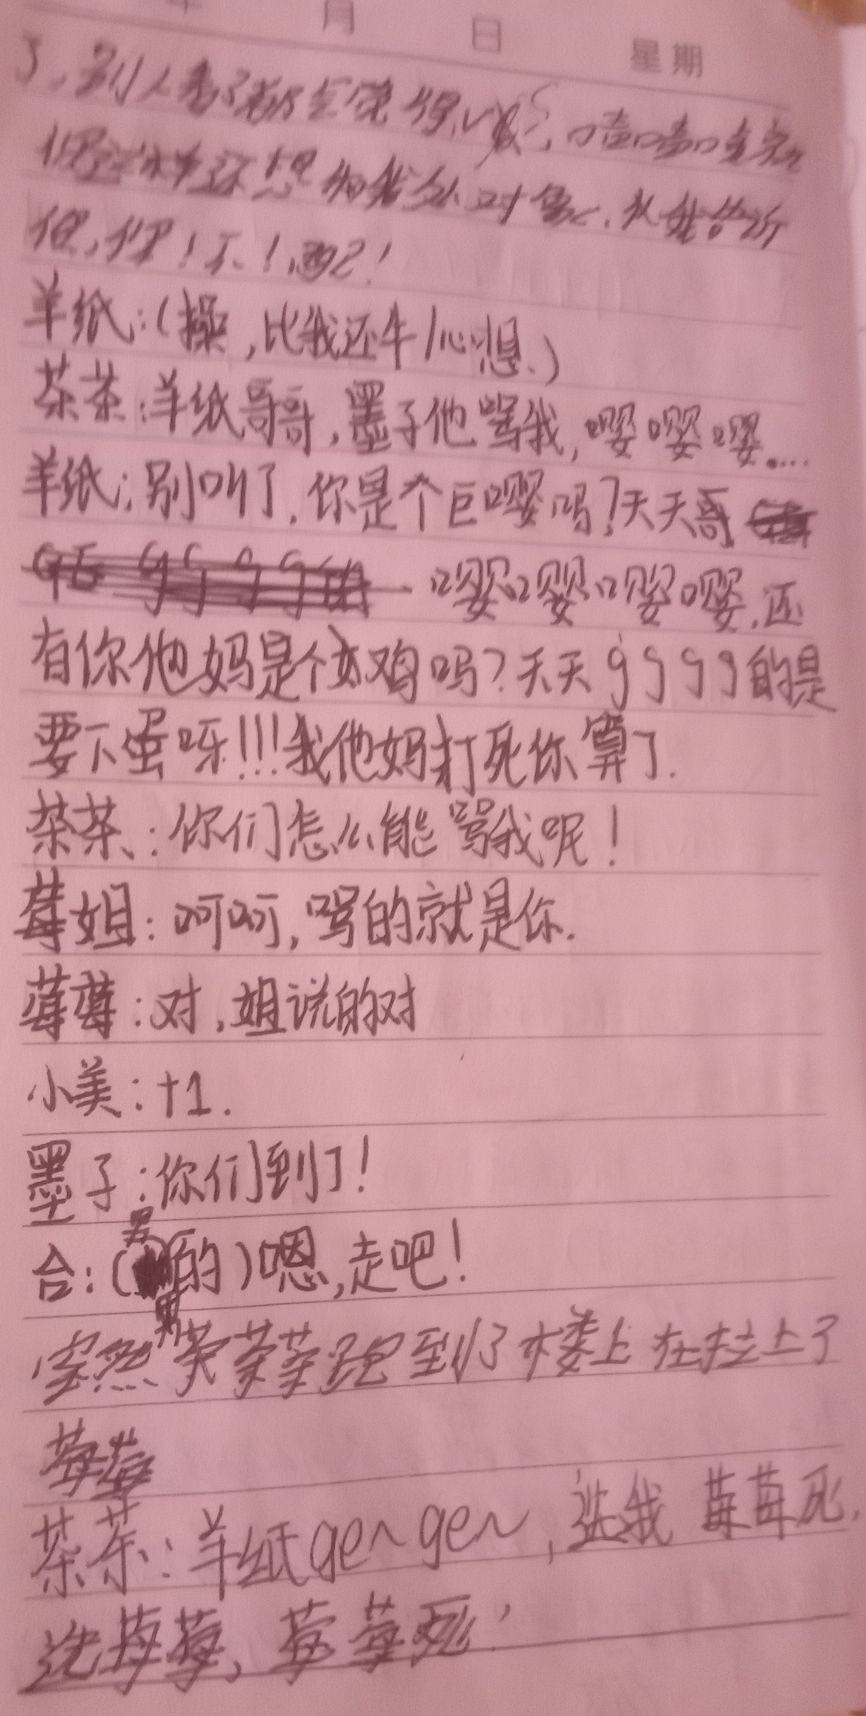 年 月 日 星期
了,别人看了都觉得,啧啧啧,就
你这样还想和我处对象,我告诉
你,你!不!配!
羊纸:(操,比我还牛/心想.)
茶茶:羊纸哥哥,墨子他骂我,嘤嘤嘤....
羊纸:别叫了,你是个巨嘤吗?天天哥
嘤嘤嘤嘤,还
有你他妈是个鸡吗?天天gggg的是
要下蛋呀!!!我他妈打死你算了.
茶茶:你们怎么能骂我呢!
莓姐:呵呵,骂的就是你.
莓莓:对,姐说的对
小美:+1.
墨子:你们到了!
合:(男的)嗯,走吧!
突然茶茶跑到了楼上在拉上了
莓莓
茶茶:羊纸ge~ge~,选我莓莓死,
选莓莓,莓莓死!